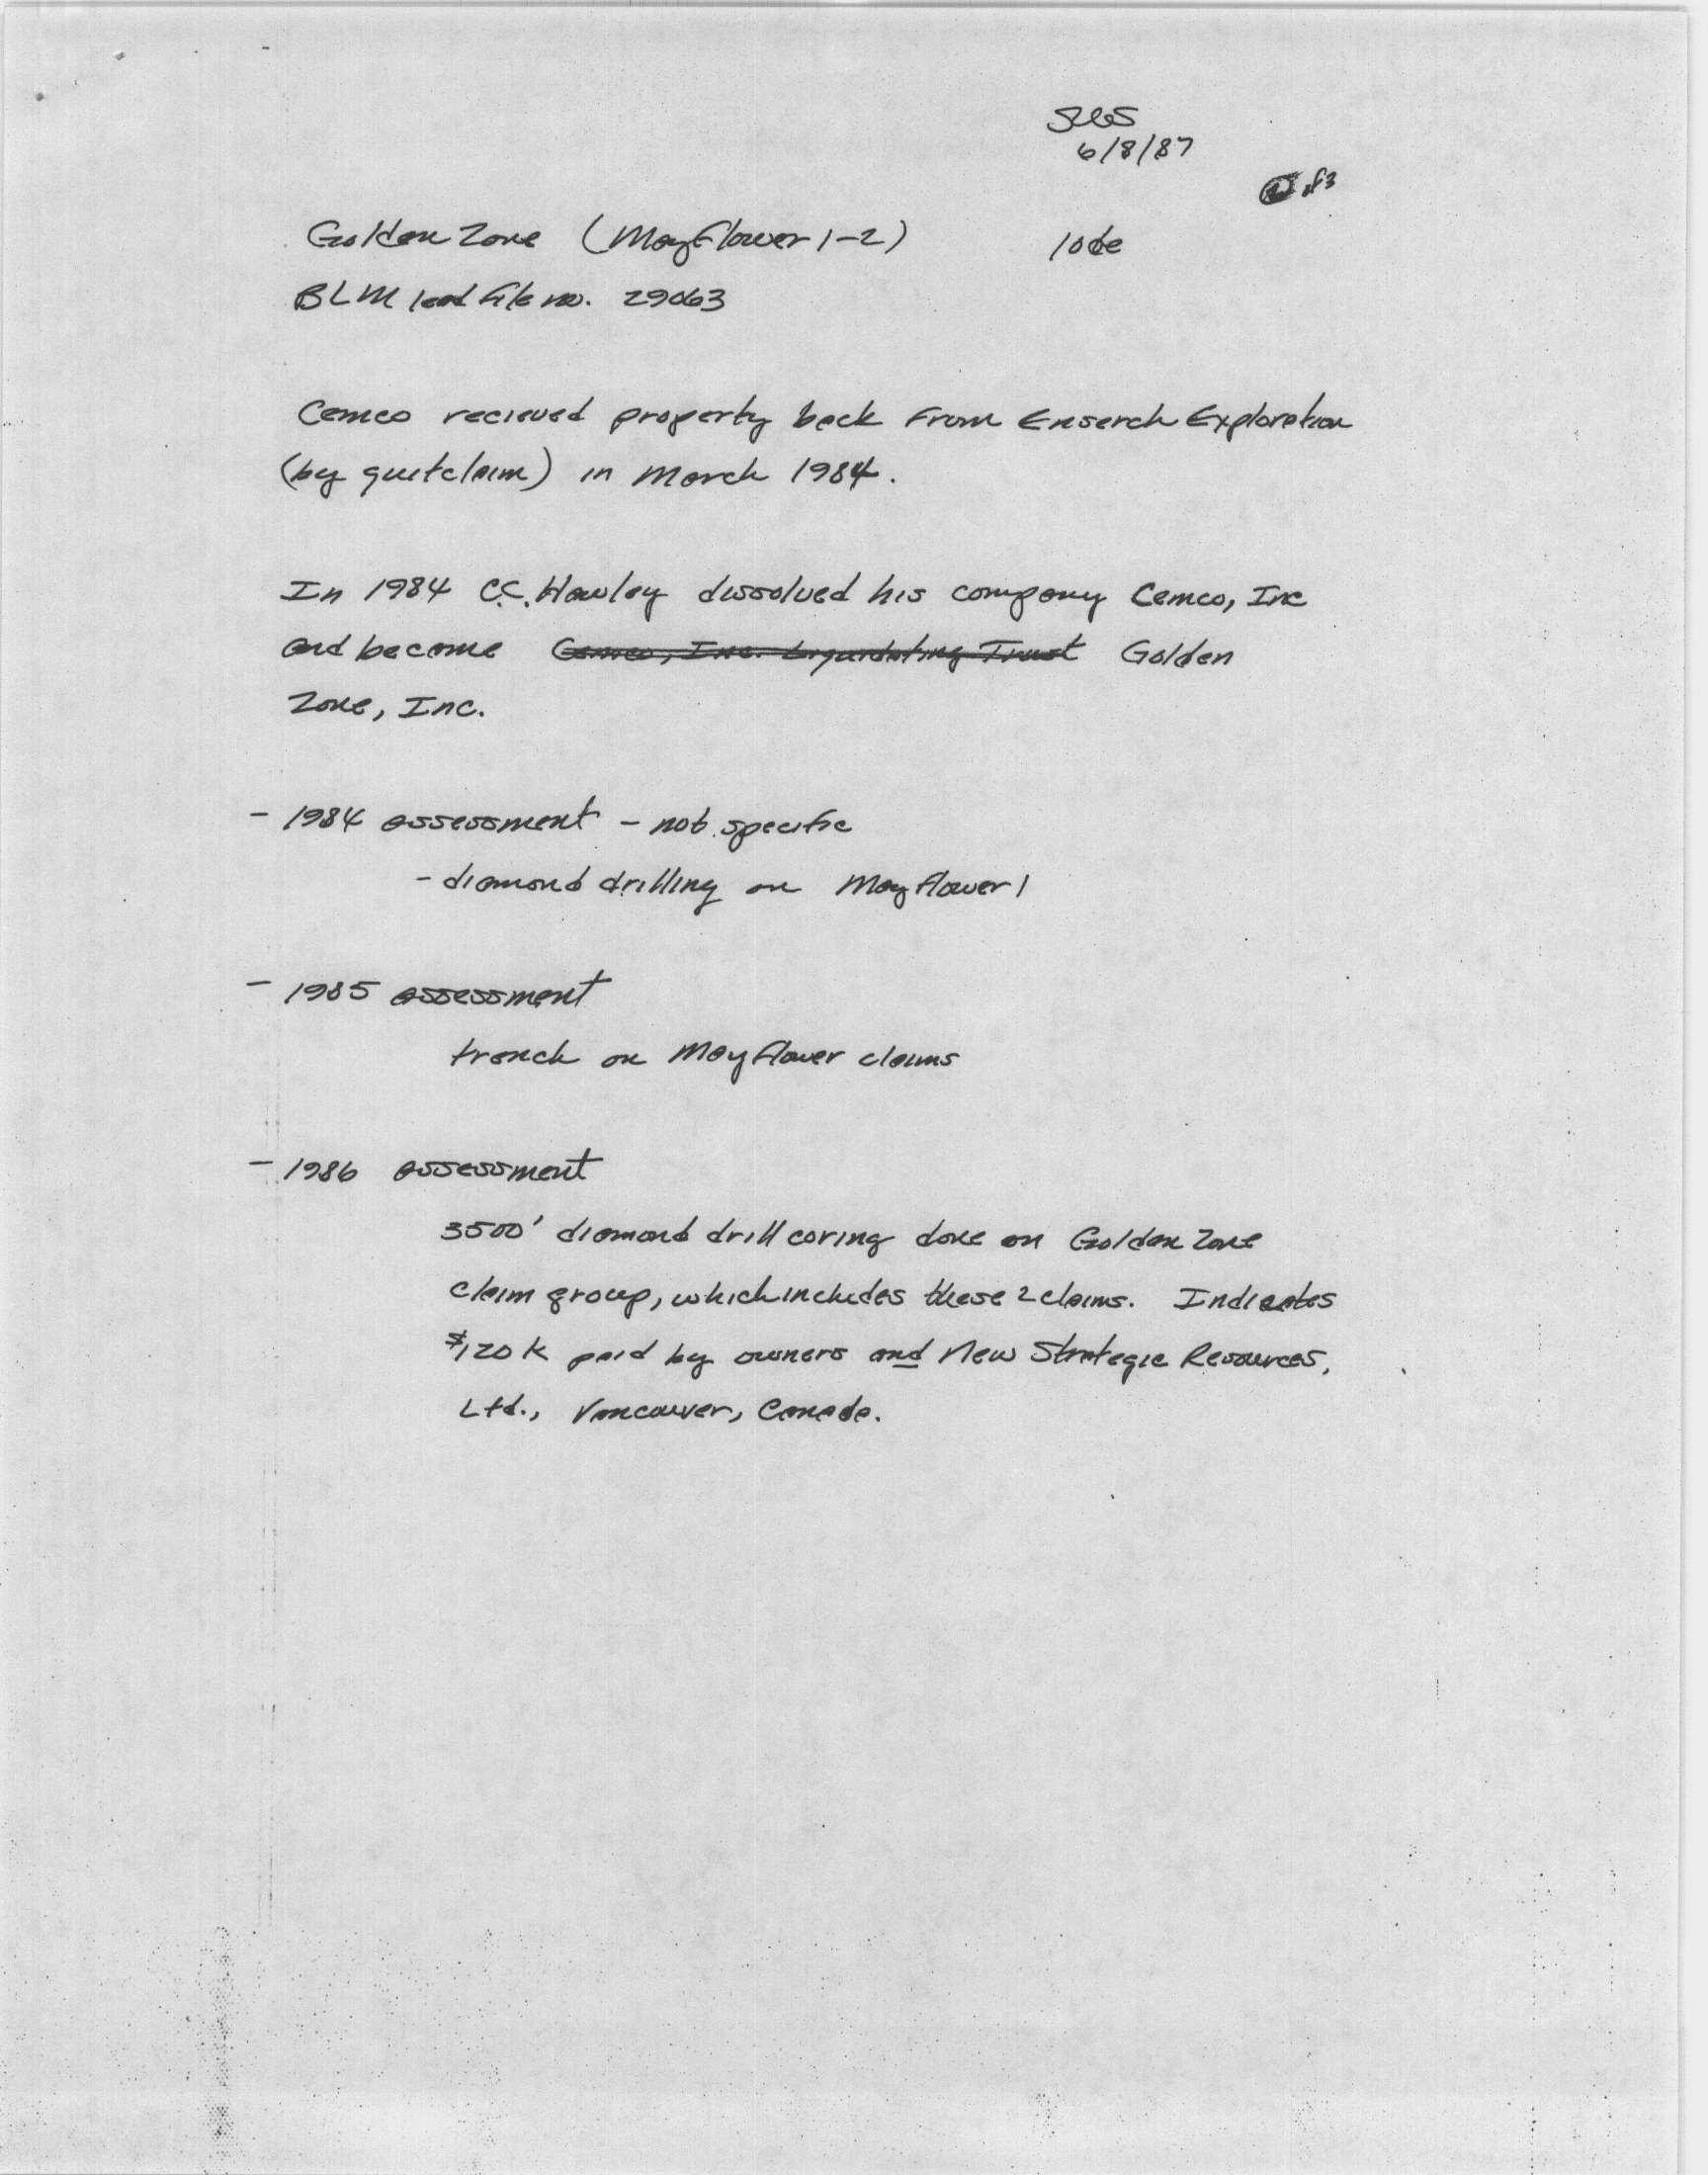 6/8/87
of 3
Golden Zone (Mayflower 1-2) lode
BLM lead file no. 29063
Cemco recieved property back from Enserch Exploration
(by quitclaim) in March 1984.
In 1984 C.C. Hawley dissolved his company Cemco, Inc
and became Cemco, Inc. Liquidating Trust Golden
Zone, Inc.
- 1984 assessment - not specific
- diamond drilling on Mayflower 1
- 1985 assessment
trench on Mayflower claims
- 1986 assessment
3500' diamond drill coring done on Golden Zone
claim group, which includes these 2 claims. Indicates
$120 K paid by owners and New Strategic Resources,
Ltd., Vancouver, Canada.